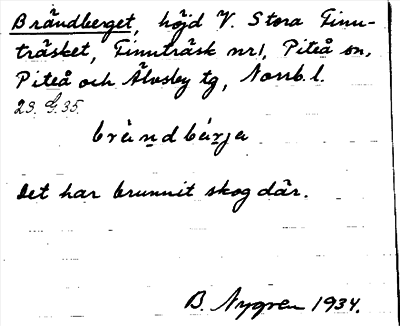 Brändberget, höjd V. Stora Finn-
träsket, Finnträsk nr 1, Piteå sn,
Piteå och Älvsby tg, Norrb. l.
23. G. 35.
brä̀ndbä́rja
Det har brunnit skog där.
B. Nygren 1934.